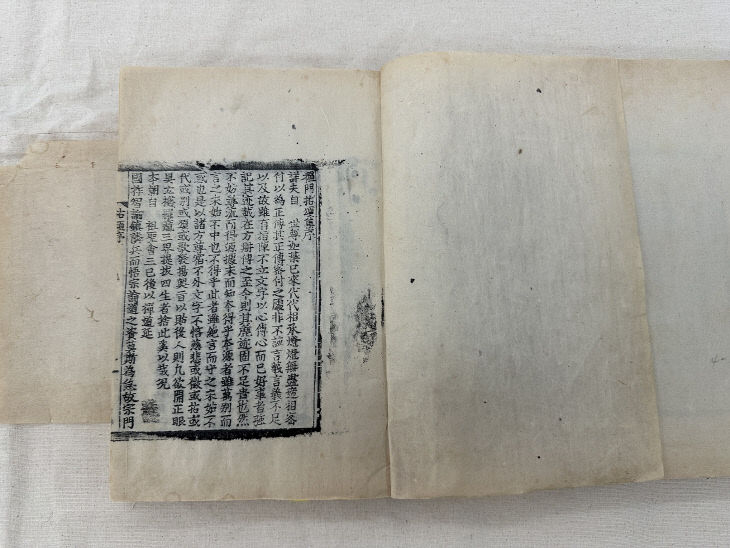 禪門拈頌集序
詳夫自 世尊迦葉已來代代相承燈燈無盡遞相密
付以為正傳其正傳密付之處非不該言義言義不足
以及故雖有指陳不立文字以心傳心而已好事者强
記其迹載在方冊傳之至今則其麤迹固不足貴也然
不妨尋流而得源據末而知本得乎本源者雖萬別而
言之未始不中也不得乎此者雖絶言而守之未始不
惑也是以諸方尊宿不外文字不悋慈悲或徵或拈或
代或別或頌或歌發揚奧旨以貽後人則凡欲開正眼
具玄機羅籠三界提拔四生者捨此奚以哉況
本朝自 祖聖會三已後以禪道延
國祚智論鎮隣兵而悟宗論道之資莫斯為急故宗門
拈頌序